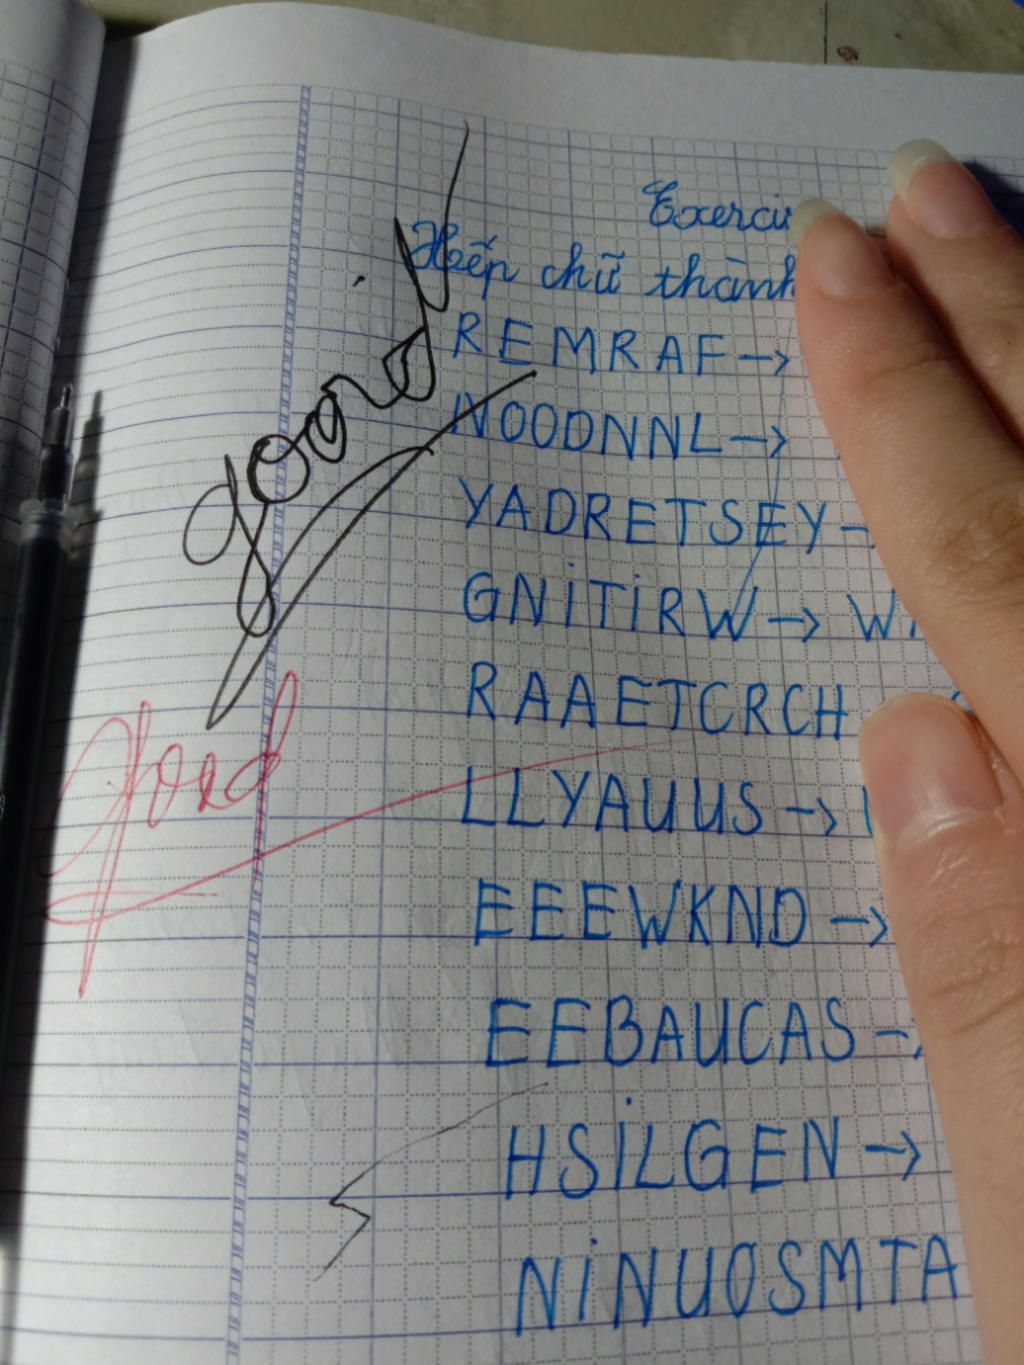 Exerci
Xếp chữ thành
REMRAF →
NOODNNL →
YADRETSEY →
GNiTiRW → Wi
RAAETCRCH
LLYAUUS →
EEEWKND →
EEBAUCAS →
HSiLGEN →
NiNUOSMTA
good
Good